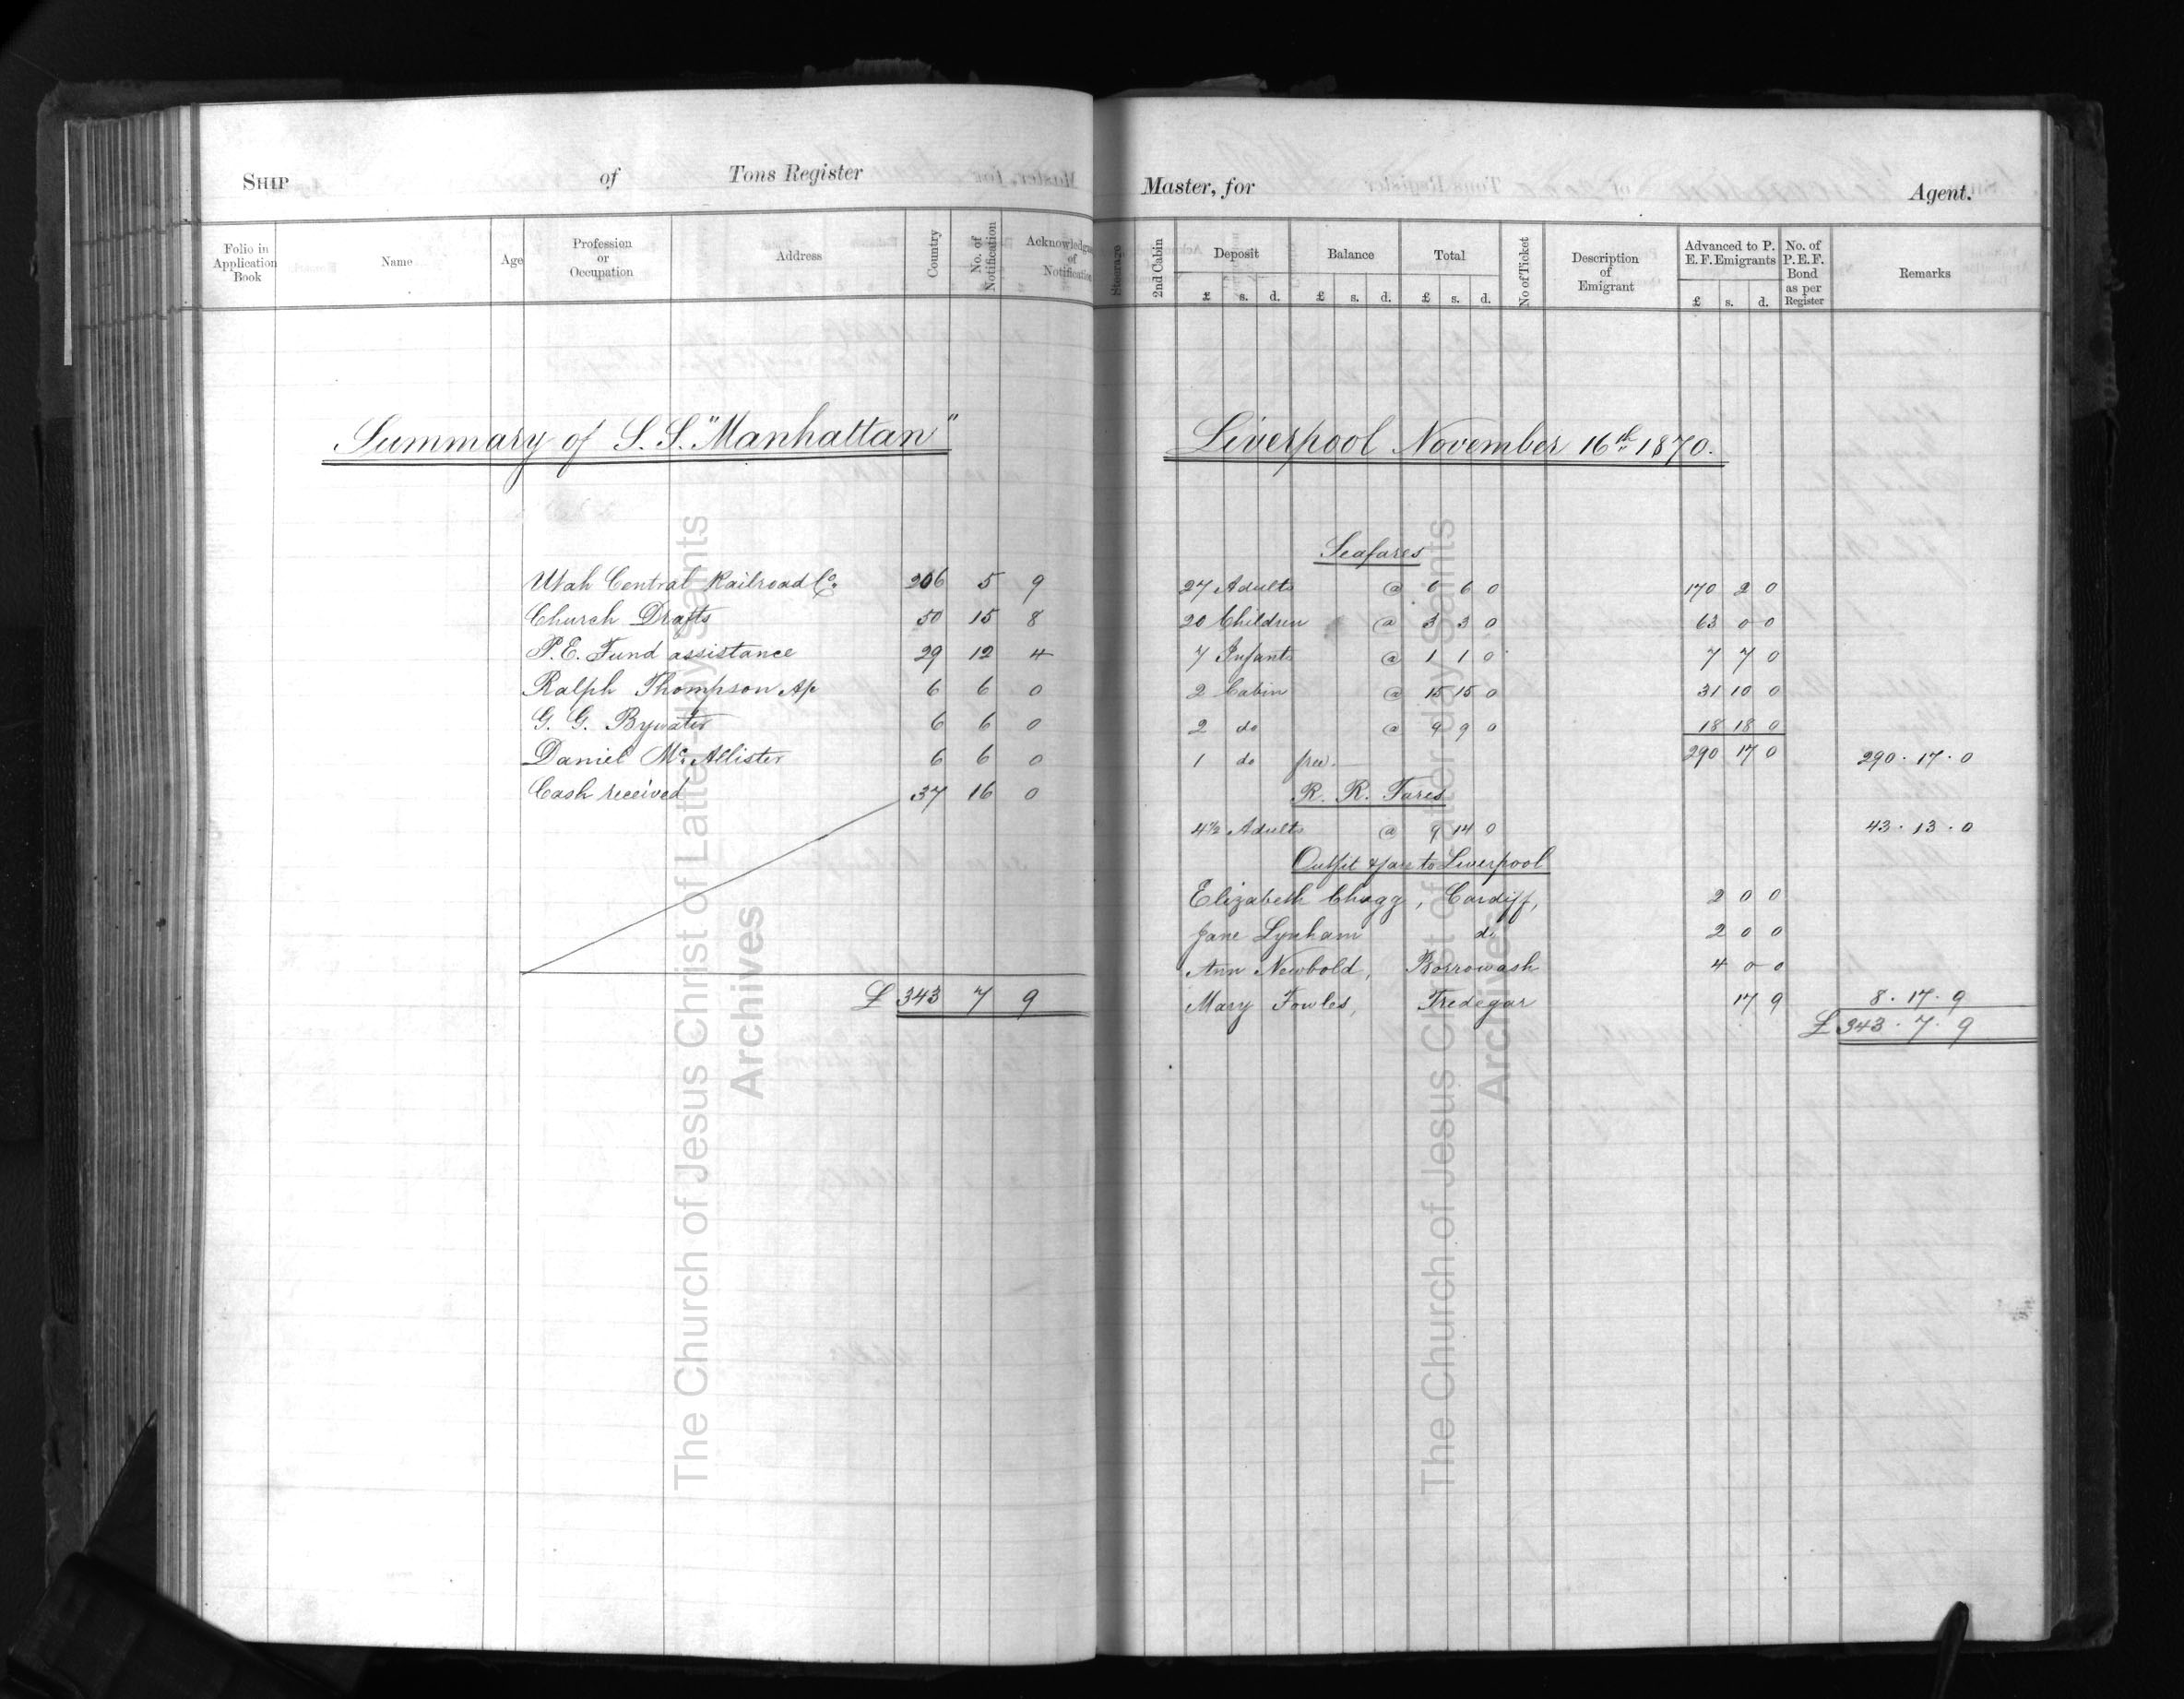 SHIP of Tons Register
Folio in Application Book Name Age Profession or Occupation Address Country No. of Notification Acknowledgm of Notification
Summary of S.S. "Manhattan"
Utah Central Railroad Co. 206 5 9
Church Drafts 50 15 8
P.E. Fund assistance 29 12 4
Ralph Thompson Ap 6 6 0
G. G. Bywater 6 6 0
Daniel Mc Allister 6 6 0
Cash received 37 16 0
£ 343 7 9
The Church of Jesus Christ of Latter-day Saints
Archives
Master, for Agent.
Steerage 2nd Cabin Deposit £ s. d. Balance £ s. d. Total £ s. d. No of Ticket Description of Emigrant Advanced to P. E. F. Emigrants £ s. d. No. of P.E.F. Bond as per Register Remarks
Liverpool November 16th 1870.
Seafares
27 Adults @ 6 6 0 170 2 0
20 Children @ 3 3 0 63 0 0
7 Infants @ 1 1 0 7 7 0
2 Cabin @ 15 15 0 31 10 0
2 do @ 9 9 0 18 18 0
1 do free. 290 17 0 290 . 17 . 0
R. R. Fares
4½ Adults @ 9 14 0 43 . 13 . 0
Outfit & fare to Liverpool
Elizabeth Chugg, Cardiff, 2 0 0
Jane Lynham do 2 0 0
Ann Newbold, Borrowash 4 0 0
Mary Fowles, Tredegar 17 9 8 . 17 . 9
£ 343 . 7 . 9
The Church of Jesus Christ of Latter-day Saints
Archives